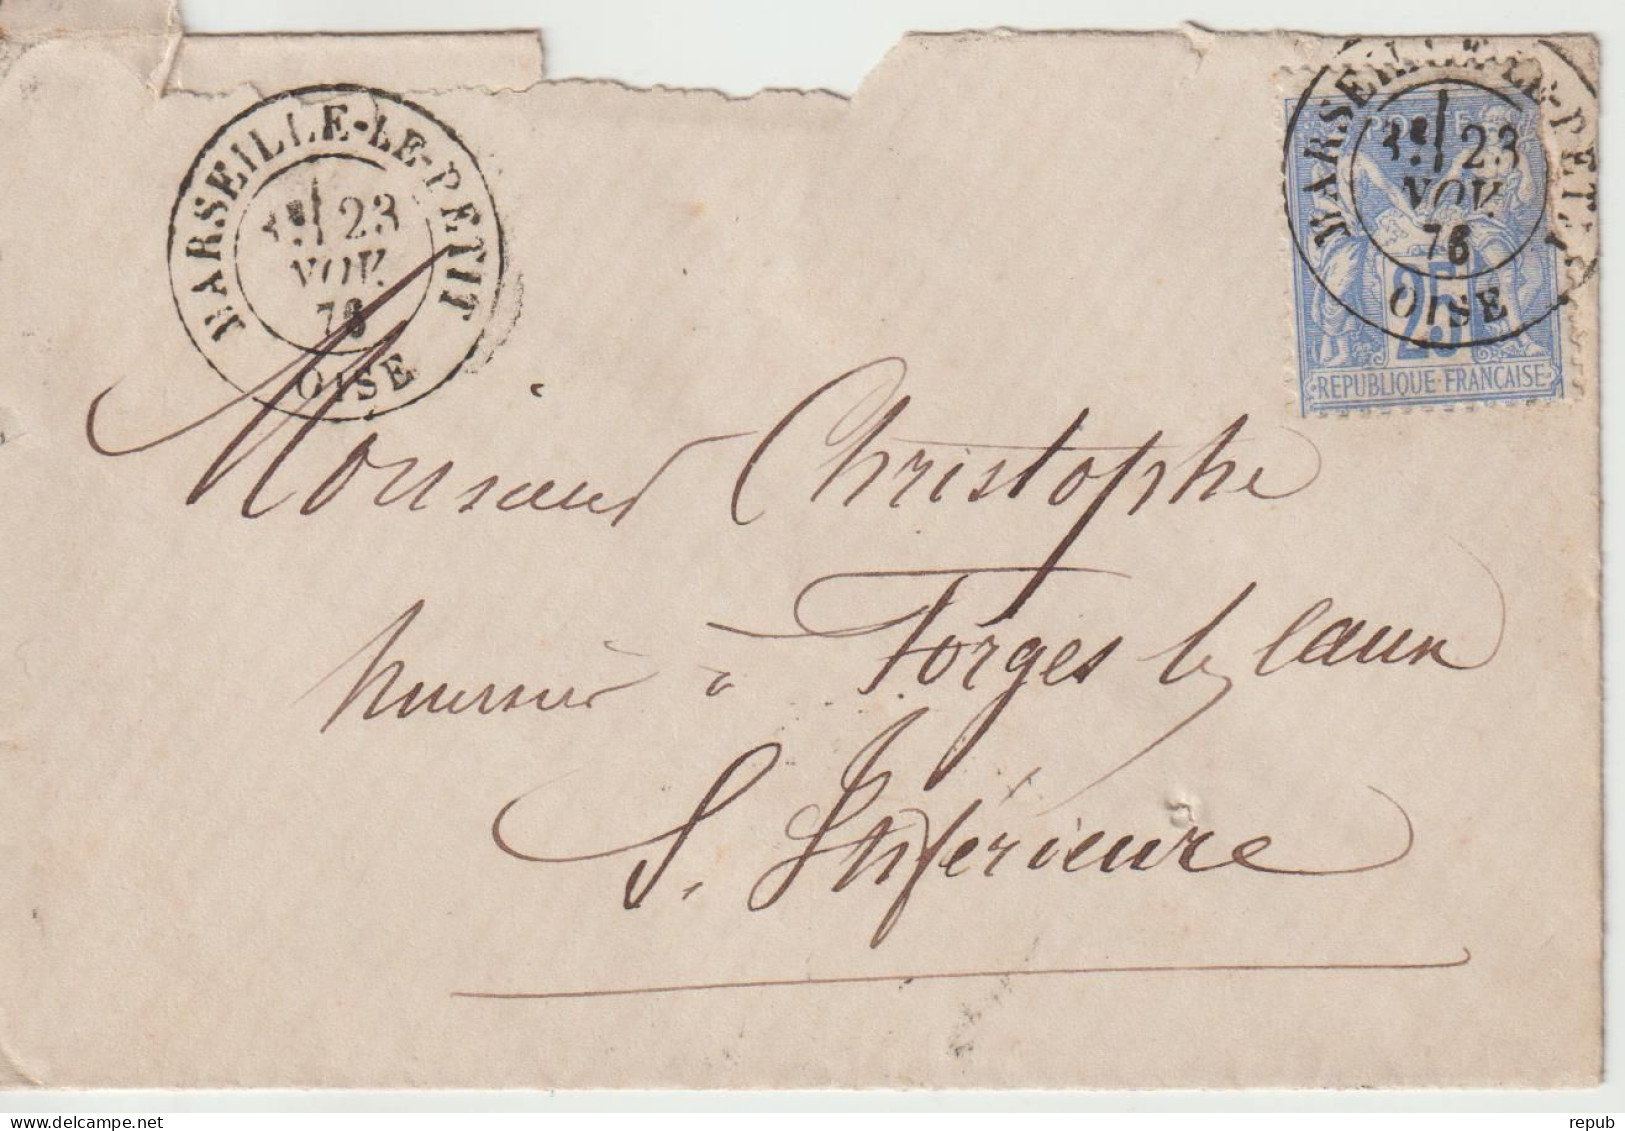 MARSEILLE-LE-PETIT
23
NOV.
76
OISE
MARSEILLE-LE-PETIT
23
NOV.
76
OISE
POSTE
25
REPUBLIQUE FRANCAISE
Monsieur Christophe
à Forges les Eaux
S. Inférieure
repub